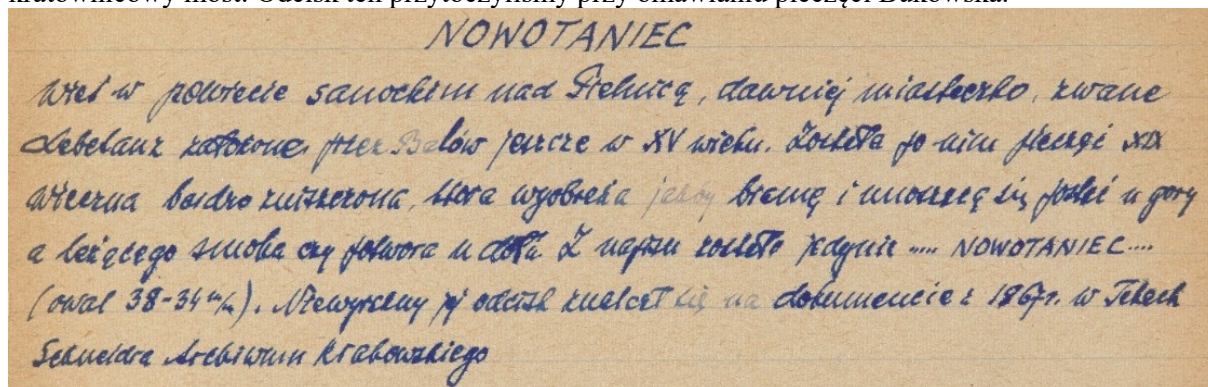 kratownicowy most. Odcisk ten przytoczyliśmy przy omawianiu pieczęci Bukowska.
NOWOTANIEC
Wieś w powiecie sanockim nad Pielnicą, dawniej miasteczko, zwane
Lebetanz założone przez Balów jeszcze w XV wieku. Została po nim pieczęć XIX
wieczna bardzo zniszczona, która wyobraża jakby bramę i unoszącą się postać u góry
a leżącego smoka czy potwora u dołu. Z napisu zostało jedynie ..... NOWOTANIEC ....
(owal 38-34 m/m). Niewyraźny jej odcisk znalazł się na dokumencie z 1867r. w Tekach
Schneidra Archiwum Krakowskiego